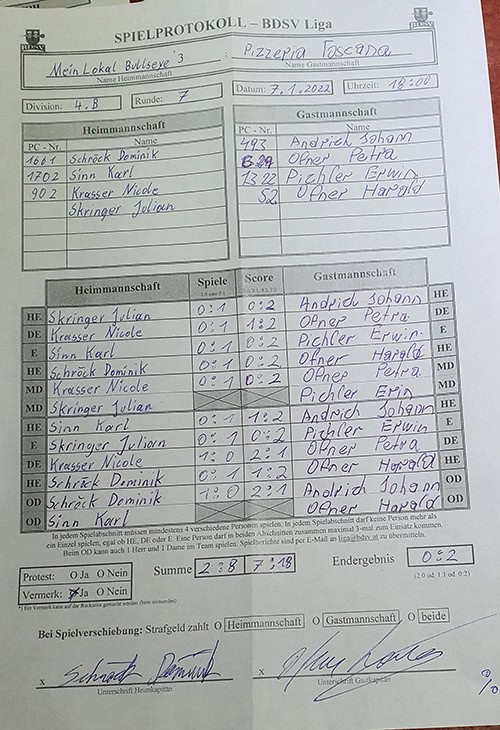 SPIELPROTOKOLL – BDSV Liga
BDSV
Mein Lokal Bullseye 3 : Pizzeria Toscana
Name Heimmannschaft Name Gastmannschaft
Division: 4.B Runde: 7 Datum: 7.1.2022 Uhrzeit: 18:00
Heimmannschaft Gastmannschaft
PC - Nr. Name PC - Nr. Name
1661 Schröck Dominik 493 Andrich Johann
1702 Sinn Karl 829 Ofner Petra
902 Krasser Nicole 1322 Pichler Erwin
Skringer Julian 52 Ofner Harald
Heimmannschaft Spiele Score Gastmannschaft
HE Skringer Julian 0:1 0:2 Andrich Johann HE
DE Krasser Nicole 0:1 1:2 Ofner Petra DE
E Sinn Karl 0:1 0:2 Pichler Erwin E
HE Schröck Dominik 0:1 0:2 Ofner Harald HE
MD Krasser Nicole 0:1 0:2 Ofner Petra MD
MD Skringer Julian Pichler Erin MD
HE Sinn Karl 0:1 1:2 Andrich Johann HE
E Skringer Julian 0:1 0:2 Pichler Erwin E
DE Krasser Nicole 1:0 2:1 Ofner Petra DE
HE Schröck Dominik 0:1 1:2 Ofner Harald HE
OD Schröck Dominik 1:0 2:1 Andrich Johann OD
OD Sinn Karl Ofner Harald OD
In jedem Spielabschnitt müssen mindestens 4 verschiedene Personen spielen. In jedem Spielabschnitt darf keine Person mehr als
ein Einzel spielen, egal ob HE, DE oder E. Eine Person darf in beiden Abschnitten zusammen maximal 3-mal zum Einsatz kommen.
Beim OD kann auch 1 Herr und 1 Dame im Team spielen. Spielberichte sind per E-Mail an liga@bdsv.at zu übermitteln.
Protest: O Ja O Nein Summe 2:8 7:18 Endergebnis 0:2
Vermerk: O Ja O Nein (2:0 od. 1:1 od. 0:2)
*) Ein Vermerk kann auf der Rückseite gemacht werden
Bei Spielverschiebung: Strafgeld zahlt O Heimmannschaft O Gastmannschaft O beide
x Schröck Dominik x
Unterschrift Heimkapitän Unterschrift Gastkapitän